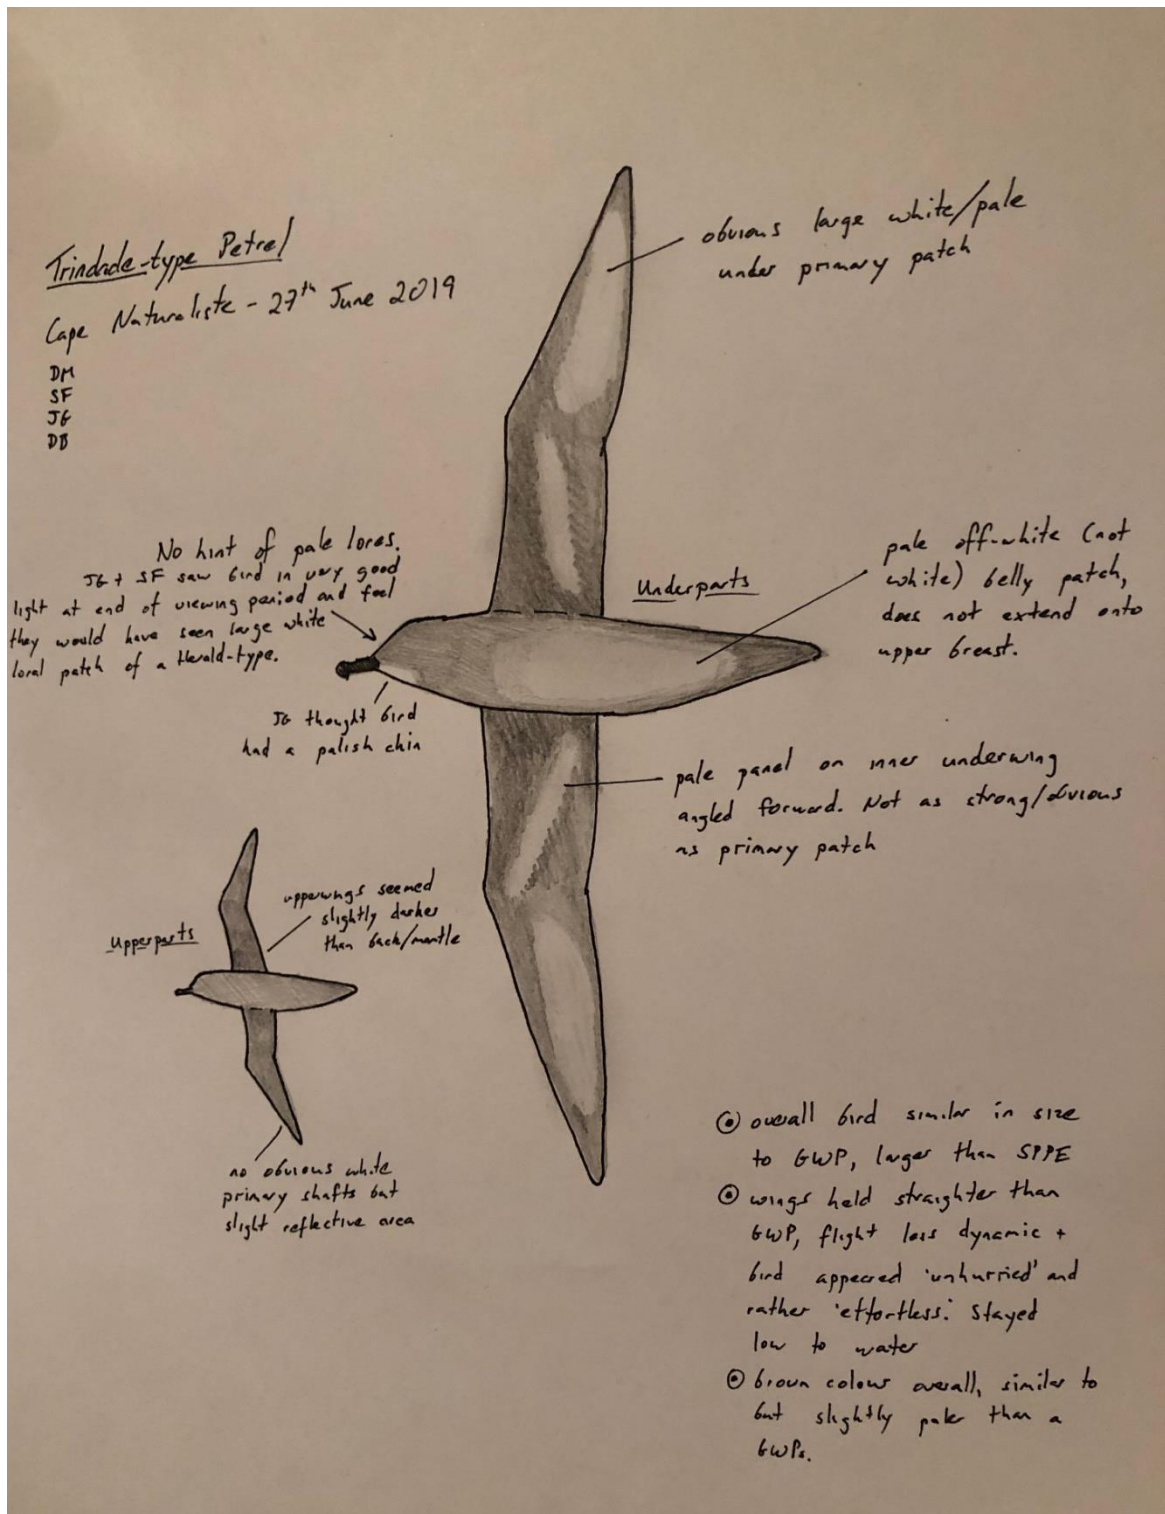 Trindade-type Petrel
Cape Naturaliste - 27th June 2019
DM
SF
JG
DB
obvious large white/pale
under primary patch
No hint of pale lores.
JG + SF saw bird in very good
light at end of viewing period and feel
they would have seen large white
loral patch of a Herald-type.
JG thought bird
had a palish chin
Underparts
pale off-white (not
white) belly patch,
does not extend onto
upper breast.
pale panel on inner underwing
angled forward. Not as strong/obvious
as primary patch
Upperparts
upperwings seemed
slightly darker
than back/mantle
no obvious white
primary shafts but
slight reflective area
overall bird similar in size
to GWP, larger than SPPE
wings held straighter than
GWP, flight less dynamic +
bird appeared 'unhurried' and
rather 'effortless'. Stayed
low to water
brown colour overall, similar to
but slightly paler than a
GWPs.